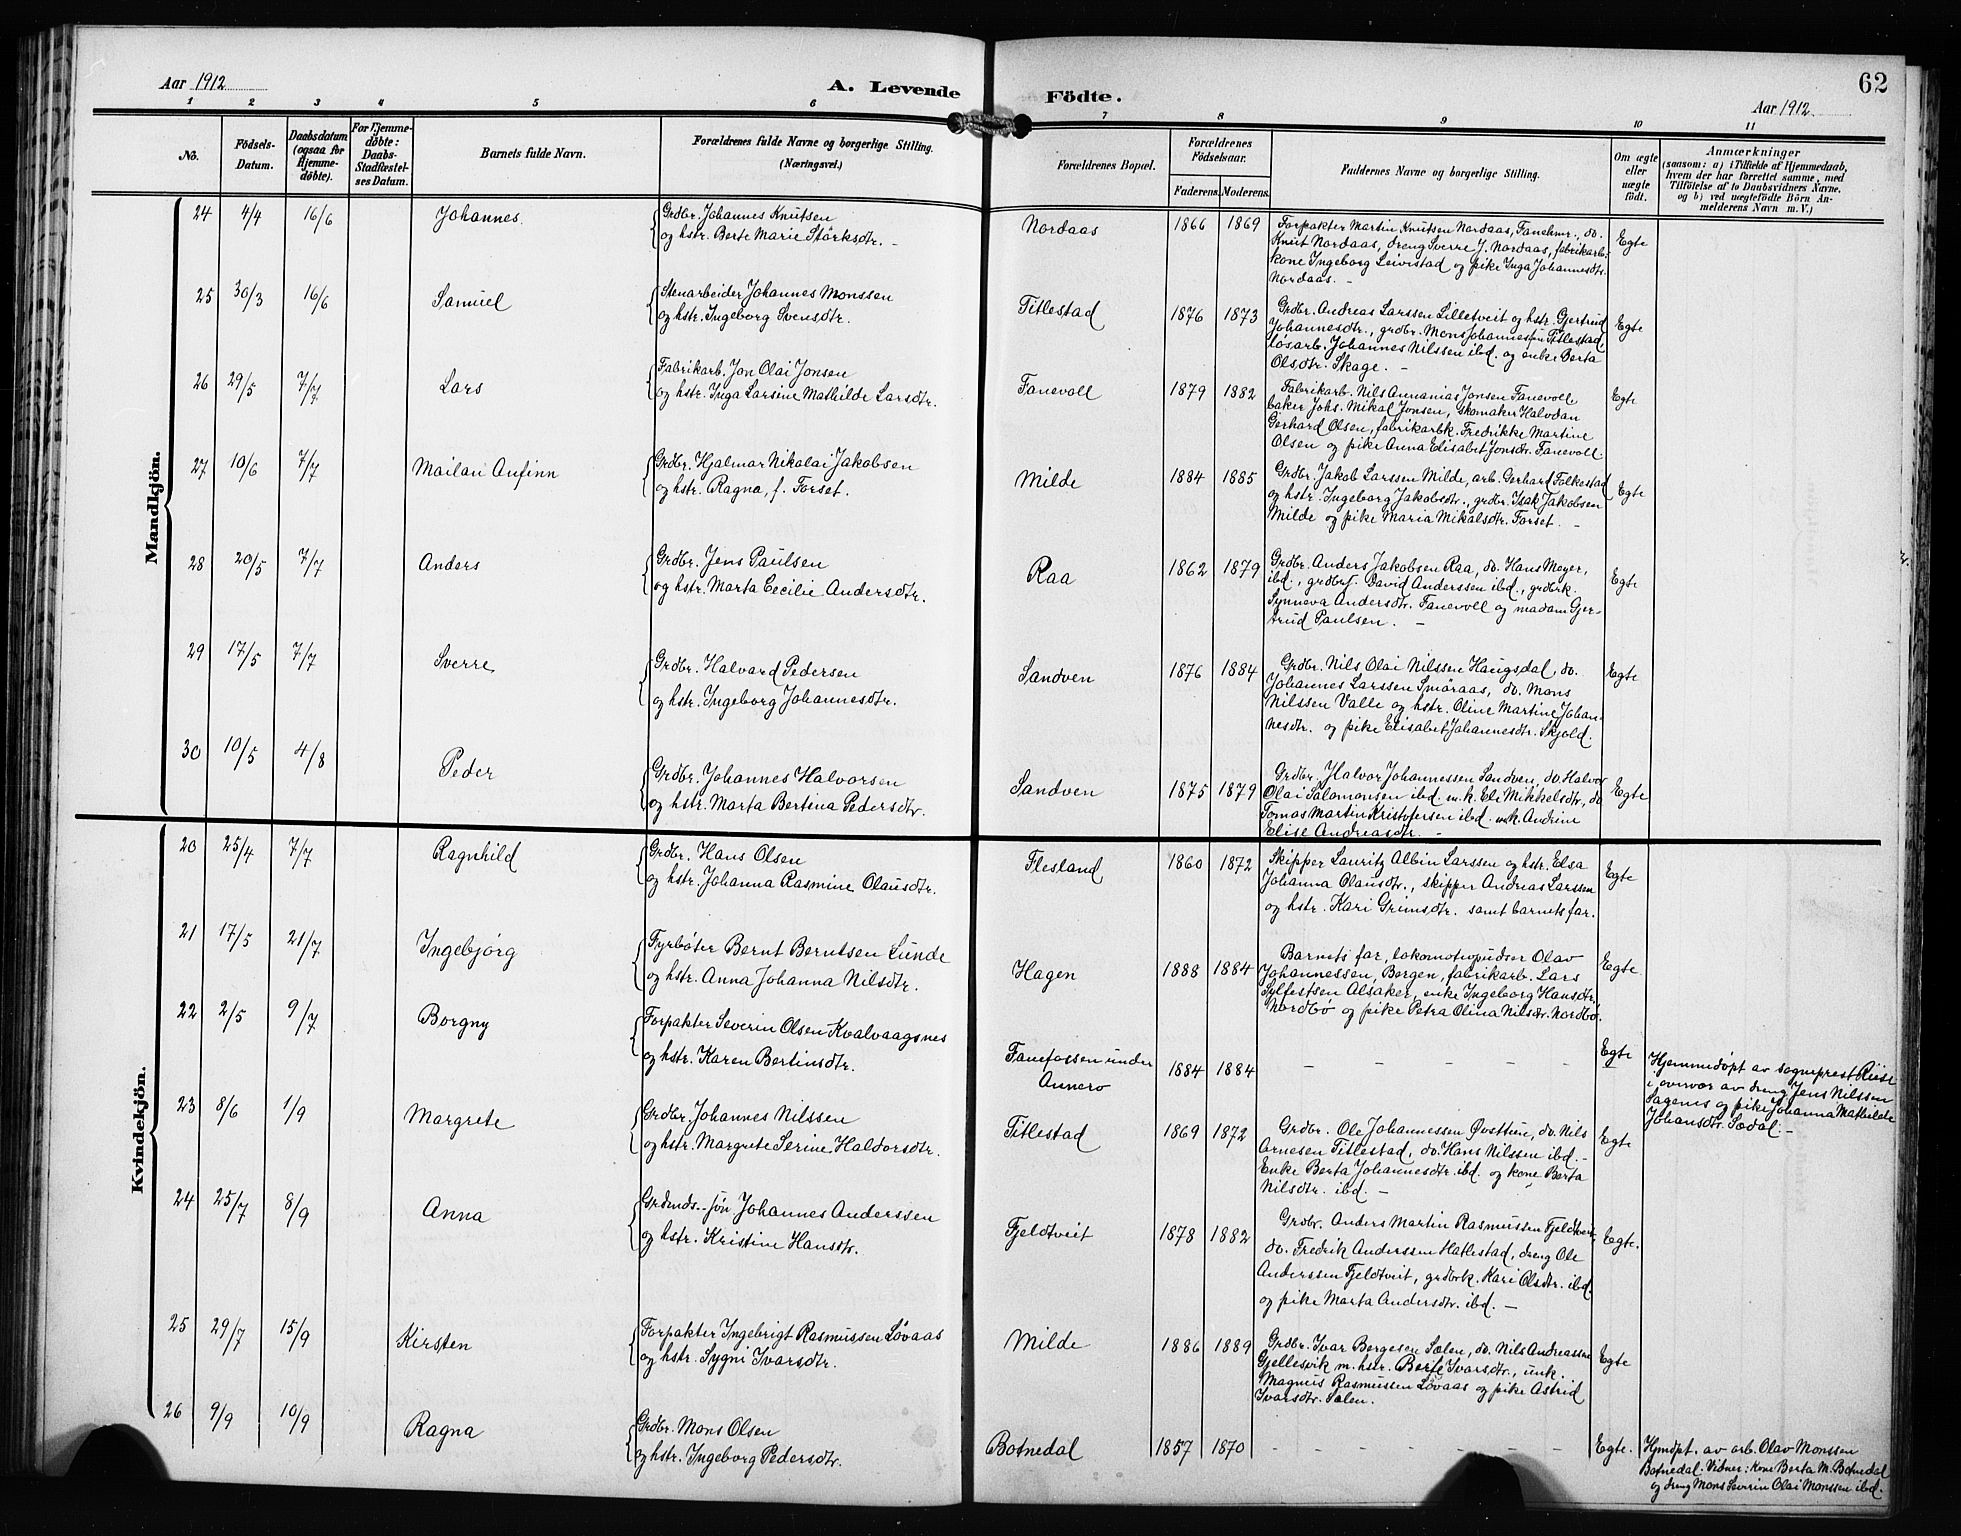 62
Aar 1912
A. Levende Födte.
Aar 1912
1 2 3 4 5 6 7 8 9 10 11
No.
Födsels-
Datum.
Daabsdatum
(ogsaa for
Hjemme-
döbte).
For Hjemme-
döbte:
Daabs-
Stadfæstel-
ses Datum.
Barnets fulde Navn.
Forældrenes fulde Navne og borgerlige Stilling.
(Næringsvei.)
Forældrenes Bopæl.
Forældrenes
Födselsaar.
Faderens. Moderens.
Faddernes Navne og borgerlige Stilling.
Om ægte
eller
uægte
födt.
Anmærkninger
(saasom: a) i Tilfælde af Hjemmedaab,
hvem der har forrettet samme, med
Tilföielse af to Daabsvidners Navne.
og b) ved uægtefödte Börn An-
melderens Navn m. V.)
Mandkjön.
24 4/4 16/6 Johannes.
Grdbr. Johannes Knutsen
og hstr. Berte Marie Störksdtr. -
Nordaas 1866 1869
Forpakter Martin Knutsen Nordaas, Fanehmr., do.
Knut Nordaas, dreng Sverre J. Nordaas, fabrikarb.
kone Ingeborg Leivestad og pike Inga Johannesdtr.
Nordaas. -
Egte
25 30/3 16/6 Samuel
Stenarbeider Johannes Monssen
og hstr. Ingeborg Svensdtr.
Titlestad 1876 1873
Grdbr. Andreas Larssen Lilletveit og hstr. Gjertrud
Johannesdtr., grdbr. Mons Johannessen Titlestad,
løsarb. Johannes Nilssen ibd. og enke Berta
Olsdtr. Skage. -
Egte
26 29/5 7/7 Lars
Fabrikarb. Jon Olai Jonsen
og hstr. Inga Larsine Mathilde Larsdtr.
Fanevoll 1879 1882
Fabrikarb. Nils Annanias Jonsen Fanevoll
baker Johs. Mikal Jonsen, skomaker Halvdan
Gerhard Olsen, fabrikarbk. Fredrikke Martine
Olsen og pike Anna Elisabet Jonsdtr. Fanevoll.
Egte
27 10/6 7/7 Mailau Anfinn
Grdbr. Hjalmar Nikolai Jakobsen
og hstr. Ragna, f. Forset.
Milde 1884 1885
Grdbr. Jakob Larssen Milde, arb. Gerhard Folkestad
og hstr. Ingeborg Jakobsdtr., grdbr. Isak Jakobsen
Milde og pike Maria Mikalsdtr. Forset. -
Egte
28 20/5 7/7 Anders
Grdbr. Jens Paulsen
og hstr. Marta Cecilie Andersdtr.
Raa 1862 1879
Grdbr. Anders Jakobsen Raa, do. Hans Meyer,
ibd., grdbrs. David Anderssen ibd., grdbrk.
Synneva Andersdtr. Fanevoll og madam Gjer-
trud Paulsen. -
Egte
29 17/5 7/7 Sverre
Grdbr. Halvard Pedersen
og hstr. Ingeborg Johannesdtr.
Sandven 1876 1884
Grdbr. Nils Olai Nilssen Haugsdal, do.
Johannes Larssen Smöraas, do. Mons
Nilssen Valle og hstr. Oline Martine Johan-
nesdtr. og pike Elisabet Johannesdtr. Skjold.
Egte
30 10/5 4/8 Peder
Grdbr. Johannes Halvorsen
og hstr. Marta Bertina Pedersdtr.
Sandven 1875 1879
Grdbr. Halvor Johannessen Sandven, do. Halvor
Olai Salomonsen ibd. m. k. Eli Mikkelsdtr., do
Tomas Martin Kristofersen ibd. m. k. Andrine
Elise Andreasdtr. -
Egte
Kvindekjön.
20 25/4 7/7 Ragnhild
Grdbr. Hans Olsen
og hstr. Johanna Rasmine Olausdtr.
Flesland 1860 1872
Skipper Lauritz Albin Larssen og hstr. Elsa
Johanna Olausdtr., skipper Andreas Larssen
og hstr. Kari Grimsdtr. samt barnets far.
Egte
21 17/5 21/7 Ingebjørg
Fyrbøter Bernt Berntsen Lunde
og hstr. Anna Johanna Nilsdtr.
Hagen 1888 1884
Barnets far, lokomotivpudser Olav
Johannessen, Bergen, fabrikarb. Lars
Sylfestsen Alsaker, enke Ingeborg Hansdtr.
Nordbø og pike Petra Olina Nilsdtr. Nordbø.
Egte
22 2/5 9/7 Borgny
Forpakter Severin Olsen Kvalvaagsnes
og hstr. Karen Bertinsdtr.
Fanefossen under
Annerø
1884 1884
- - - - - -
Egte
Hjemmedøpt av sogneprest Riise
i overvær av dreng Jens Nilssen
Sagenes og pike Johanna Mathilde
Johansdtr. Sædal. -
23 8/6 1/9 Margrete
Grdbr. Johannes Nilssen
og hstr. Margrete Serine Haldorsdtr.
Titlestad 1869 1872
Grdbr. Ole Johannessen Øvsttun, do. Nils
Arnesen Titlestad, do. Hans Nilssen ibd. -
Enke Berta Johannesdtr. ibd. og kone Berta
Nilsdtr. ibd. -
Egte
24 25/7 8/9 Anna
Grdmds. søn Johannes Anderssen
og hstr. Kristine Hansdtr.
Fjeldtveit 1878 1882
Grdbr. Anders Martin Rasmussen Fjeldtveit,
do. Fredrik Anderssen Hatlestad, dreng Ole
Anderssen Fjeldtveit, grdbrk. Kari Olsdtr. ibd.
og pike Marta Andersdtr. ibd. -
Egte.
25 29/7 15/9 Kirsten
Forpakter Ingebrigt Rasmussen Løvaas
og hstr. Sygni Ivarsdtr.
Milde 1886 1889
Grdbr. Ivar Bergesen Sælen, do. Nils Andreassen
Gjellesvik m. hstr. Berte Ivarsdtr., unk.
Magnus Rasmussen Løvaas og pike Astrid
Ivarsdtr. Sælen.
Egte
26 9/9 10/9 Ragna
Grdbr. Mons Olsen
og hstr. Ingeborg Pedersdtr.
Botnedal 1857 1870
- - - - - - -
Egte.
Hjmdpt. av arb. Olav Monssen
Botnedal. Vidner: Kone Berta M. Botnedal
og dreng Mons Severin Olai Monssen ibd.